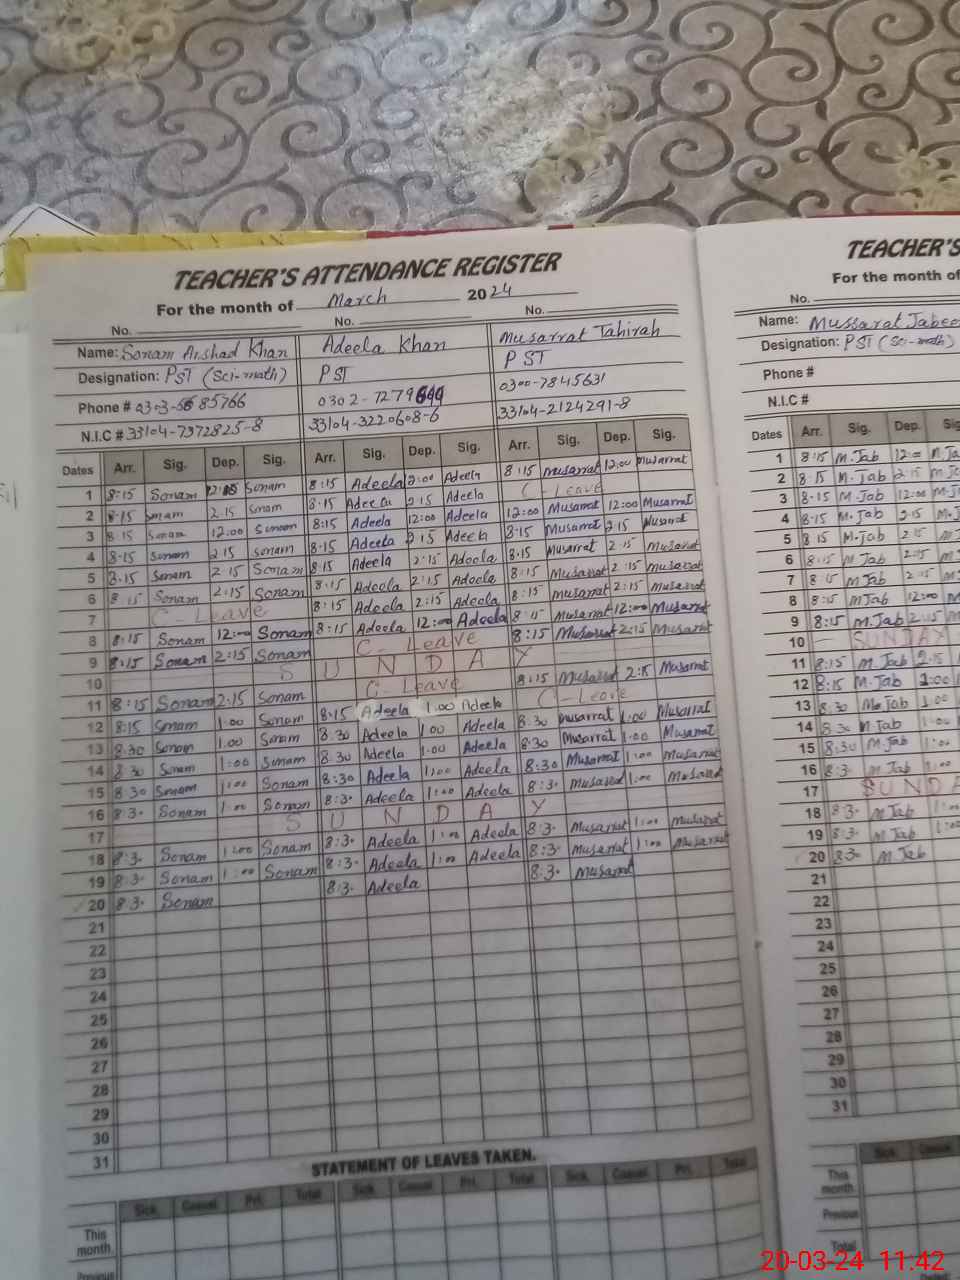 TEACHER'S ATTENDANCE REGISTER TEACHER'S
For the month of March 2024 For the month of
No. No. No. No.
Name: Sonam Arshad Khan Adeela Khan Musarrat Tahirah Name: Mussarat Jabee
Designation: PST (Sci-math) PST PST Designation: PST (Sci-math)
Phone # 0302-7279 0300-7845631 Phone #
N.I.C # 33104-7372825-8 33104-3220608-6 33104-2124291-8 N.I.C #
Dates Arr. Sig. Dep. Sig. Arr. Sig. Dep. Sig. Arr. Sig. Dep. Sig. Dates Arr. Sig. Dep. Sig
1 8:15 Sonam Sonam 8:15 Adeela 2:00 Adeela 8:15 Musarrat 12:00 Musarrat 1 8:15 M.Jab 12:00 M.Ja
2 8.15 Sonam 2.15 Sonam 8.15 Adeela 2:15 Adeela C-Leave 2 8.15 M.Jab 2.15
3 8.15 Sonam 12:00 Sonam 8:15 Adeela 12:00 Adeela 12:00 Musarrat 12:00 Musarrat 3 8.15 M.Jab 12:00
4 8.15 Sonam 2.15 Sonam 8.15 Adeela 2.15 Adeela 8.15 Musarrat 2.15 Musarrat 4 8.15 M.Jab 2.15
5 8.15 Sonam 2.15 Sonam 8:15 Adeela 2:15 Adeela 8:15 Musarrat 2.15 Musarrat 5 8.15 M.Jab 2.15
6 8:15 Sonam 2:15 Sonam 8.15 Adeela 2:15 Adeela 8:15 Musarrat 2:15 Musarrat 6 8:15 M Jab 2:15
7 C-Leave 8:15 Adeela 2:15 Adeela 8:15 Musarrat 2:15 Musarrat 7 8:15 M Jab 2:15
8 8:15 Sonam 12:00 Sonam 8:15 Adeela 12:00 Adeela 8:15 Musarrat 12:00 Musarrat 8 8:15 M Jab 12:00
9 8:15 Sonam 2:15 Sonam C-Leave 8:15 Musarrat 2:15 Musarrat 9 8:15 M.Jab 2:15
10 SUNDAY 10 SUNDAY
11 8:15 Sonam 2:15 Sonam C-Leave 8:15 Musarrat 2:15 Musarrat 11 8:15 M.Jab 2.15
12 8:15 Sonam 1:00 Sonam 8:15 Adeela 1.00 Adeela C-Leave 12 8:15 M.Jab
13 8.30 Sonam 1.00 Sonam 8:30 Adeela 1:00 Adeela 8:30 Musarrat 1:00 Musarrat 13 8.30 M.Jab 1:00
14 8:30 Sonam 1:00 Sonam 8:30 Adeela 1:00 Adeela 8:30 Musarrat 1:00 Musarrat 14 8:30 M Jab 1:00
15 8:30 Sonam 1:00 Sonam 8:30 Adeela 1:00 Adeela 8:30 Musarrat 1:00 Musarrat 15 8:30 M.Jab 1:00
16 8:3. Sonam 1:00 Sonam 8:3. Adeela 1:00 Adeela 8:3. Musarrat 1:00 Musarrat 16 8:3. M Jab 1:00
17 SUNDAY 17 SUNDA
18 8:3. Sonam 1:00 Sonam 8:3. Adeela 1:00 Adeela 8:3. Musarrat 1:00 Musarrat 18 8:3. M Jab 1:00
19 8:3. Sonam 1:00 Sonam 8:3. Adeela 1:00 Adeela 8:3. Musarrat 1:00 Musarrat 19 8:3. M Jab 1:00
20 8:3. Sonam 8:3. Adeela 8:3. Musarrat 20 8:30 M Jab
21 21
22 22
23 23
24 24
25 25
26 26
27 27
28 28
29 29
30 30
31 31
STATEMENT OF LEAVES TAKEN.
Sick Casual Pri. Total Sick Casual Pri. Total Sick Casual Pri. Total Sick Casual
This month This month
Previous Previous
Total
20-03-24 11.42